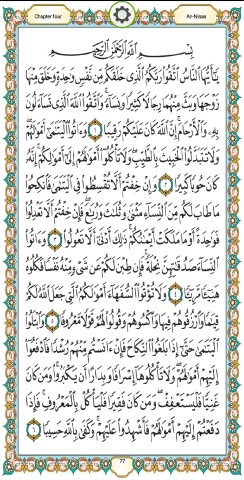 Chapter four An-Nisaa
بِسْمِ اللَّهِ الرَّحْمَٰنِ الرَّحِيمِ
يَٰٓأَيُّهَا النَّاسُ اتَّقُوا۟ رَبَّكُمُ الَّذِى خَلَقَكُم مِّن نَّفْسٍ وَٰحِدَةٍ وَخَلَقَ مِنْهَا
زَوْجَهَا وَبَثَّ مِنْهُمَا رِجَالًا كَثِيرًا وَنِسَآءً ۚ وَاتَّقُوا۟ اللَّهَ الَّذِى تَسَآءَلُونَ
بِهِۦ وَالْأَرْحَامَ ۚ إِنَّ اللَّهَ كَانَ عَلَيْكُمْ رَقِيبًا ١ وَءَاتُوا۟ الْيَتَٰمَىٰٓ أَمْوَٰلَهُمْ ۖ
وَلَا تَتَبَدَّلُوا۟ الْخَبِيثَ بِالطَّيِّبِ ۖ وَلَا تَأْكُلُوٓا۟ أَمْوَٰلَهُمْ إِلَىٰٓ أَمْوَٰلِكُمْ ۚ إِنَّهُۥ
كَانَ حُوبًا كَبِيرًا ٢ وَإِنْ خِفْتُمْ أَلَّا تُقْسِطُوا۟ فِى الْيَتَٰمَىٰ فَانكِحُوا۟
مَا طَابَ لَكُم مِّنَ النِّسَآءِ مَثْنَىٰ وَثُلَٰثَ وَرُبَٰعَ ۖ فَإِنْ خِفْتُمْ أَلَّا تَعْدِلُوا۟
فَوَٰحِدَةً أَوْ مَا مَلَكَتْ أَيْمَٰنُكُمْ ۚ ذَٰلِكَ أَدْنَىٰٓ أَلَّا تَعُولُوا۟ ٣ وَءَاتُوا۟
النِّسَآءَ صَدُقَٰتِهِنَّ نِحْلَةً ۚ فَإِن طِبْنَ لَكُمْ عَن شَىْءٍ مِّنْهُ نَفْسًا فَكُلُوهُ
هَنِيٓـًٔا مَّرِيٓـًٔا ٤ وَلَا تُؤْتُوا۟ السُّفَهَآءَ أَمْوَٰلَكُمُ الَّتِى جَعَلَ اللَّهُ لَكُمْ
قِيَٰمًا وَارْزُقُوهُمْ فِيهَا وَاكْسُوهُمْ وَقُولُوا۟ لَهُمْ قَوْلًا مَّعْرُوفًا ٥ وَابْتَلُوا۟
الْيَتَٰمَىٰ حَتَّىٰٓ إِذَا بَلَغُوا۟ النِّكَاحَ فَإِنْ ءَانَسْتُم مِّنْهُمْ رُشْدًا فَادْفَعُوٓا۟
إِلَيْهِمْ أَمْوَٰلَهُمْ ۖ وَلَا تَأْكُلُوهَآ إِسْرَافًا وَبِدَارًا أَن يَكْبَرُوا۟ ۚ وَمَن كَانَ
غَنِيًّا فَلْيَسْتَعْفِفْ ۖ وَمَن كَانَ فَقِيرًا فَلْيَأْكُلْ بِالْمَعْرُوفِ ۚ فَإِذَا
دَفَعْتُمْ إِلَيْهِمْ أَمْوَٰلَهُمْ فَأَشْهِدُوا۟ عَلَيْهِمْ ۚ وَكَفَىٰ بِاللَّهِ حَسِيبًا ٦
77